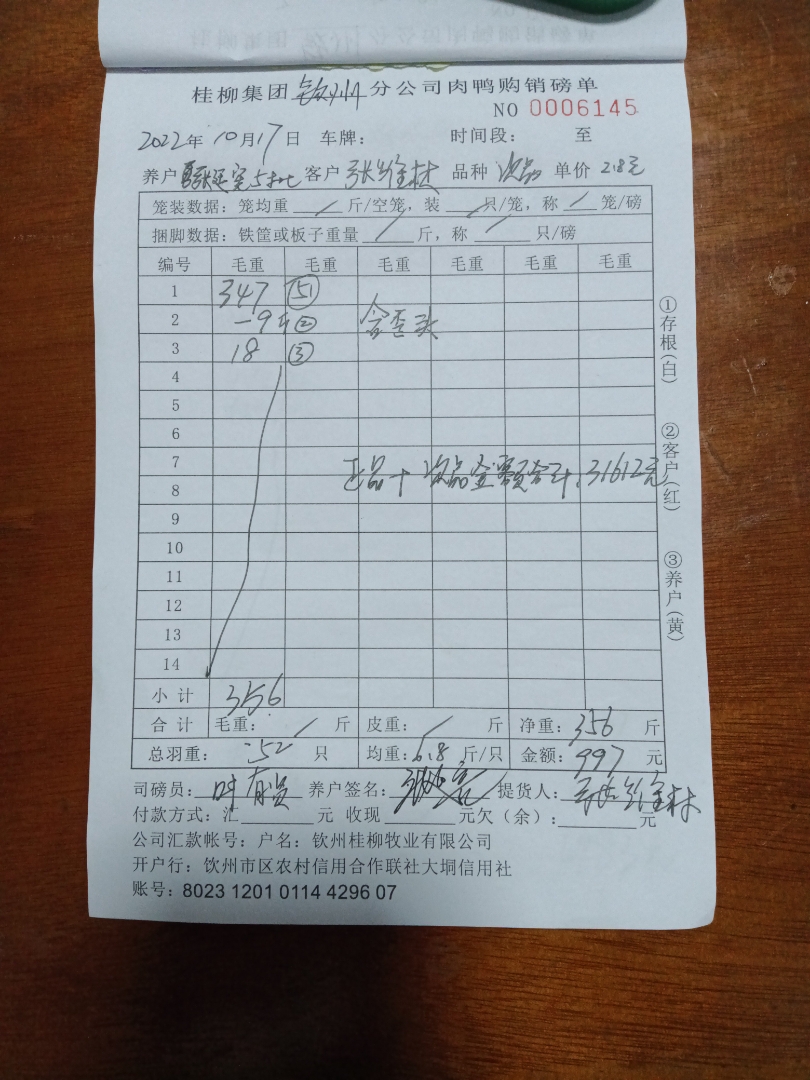 桂柳集团 钦州 分公司肉鸭购销磅单
NO 0006145
2022年 10月17日 车牌: 时间段: 至
养户 客户 张维林 品种 次品 单价 2.8元
笼装数据: 笼均重 / 斤/空笼, 装 / 只/笼, 称 / 笼/磅
捆脚数据: 铁筐或板子重量 / 斤, 称 / 只/磅
编号 毛重 毛重 毛重 毛重 毛重 毛重
1 347 51
2 -9斤 ② 含歪头
3 18 ③
4
5
6
7 正品+次品金额合计:31612元
8
9
10
11
12
13
14
小计 356
合计 毛重: / 斤 皮重: / 斤 净重: 356 斤
总羽重: 52 只 均重: 6.8 斤/只 金额: 997 元
司磅员: 叶 养户签名: 提货人: 张维林
付款方式: 汇 元 收现 元欠(余): 元
公司汇款帐号: 户名: 钦州桂柳牧业有限公司
开户行: 钦州市区农村信用合作联社大垌信用社
账号: 8023 1201 0114 4296 07
①存根(白)
②客户(红)
③养户(黄)